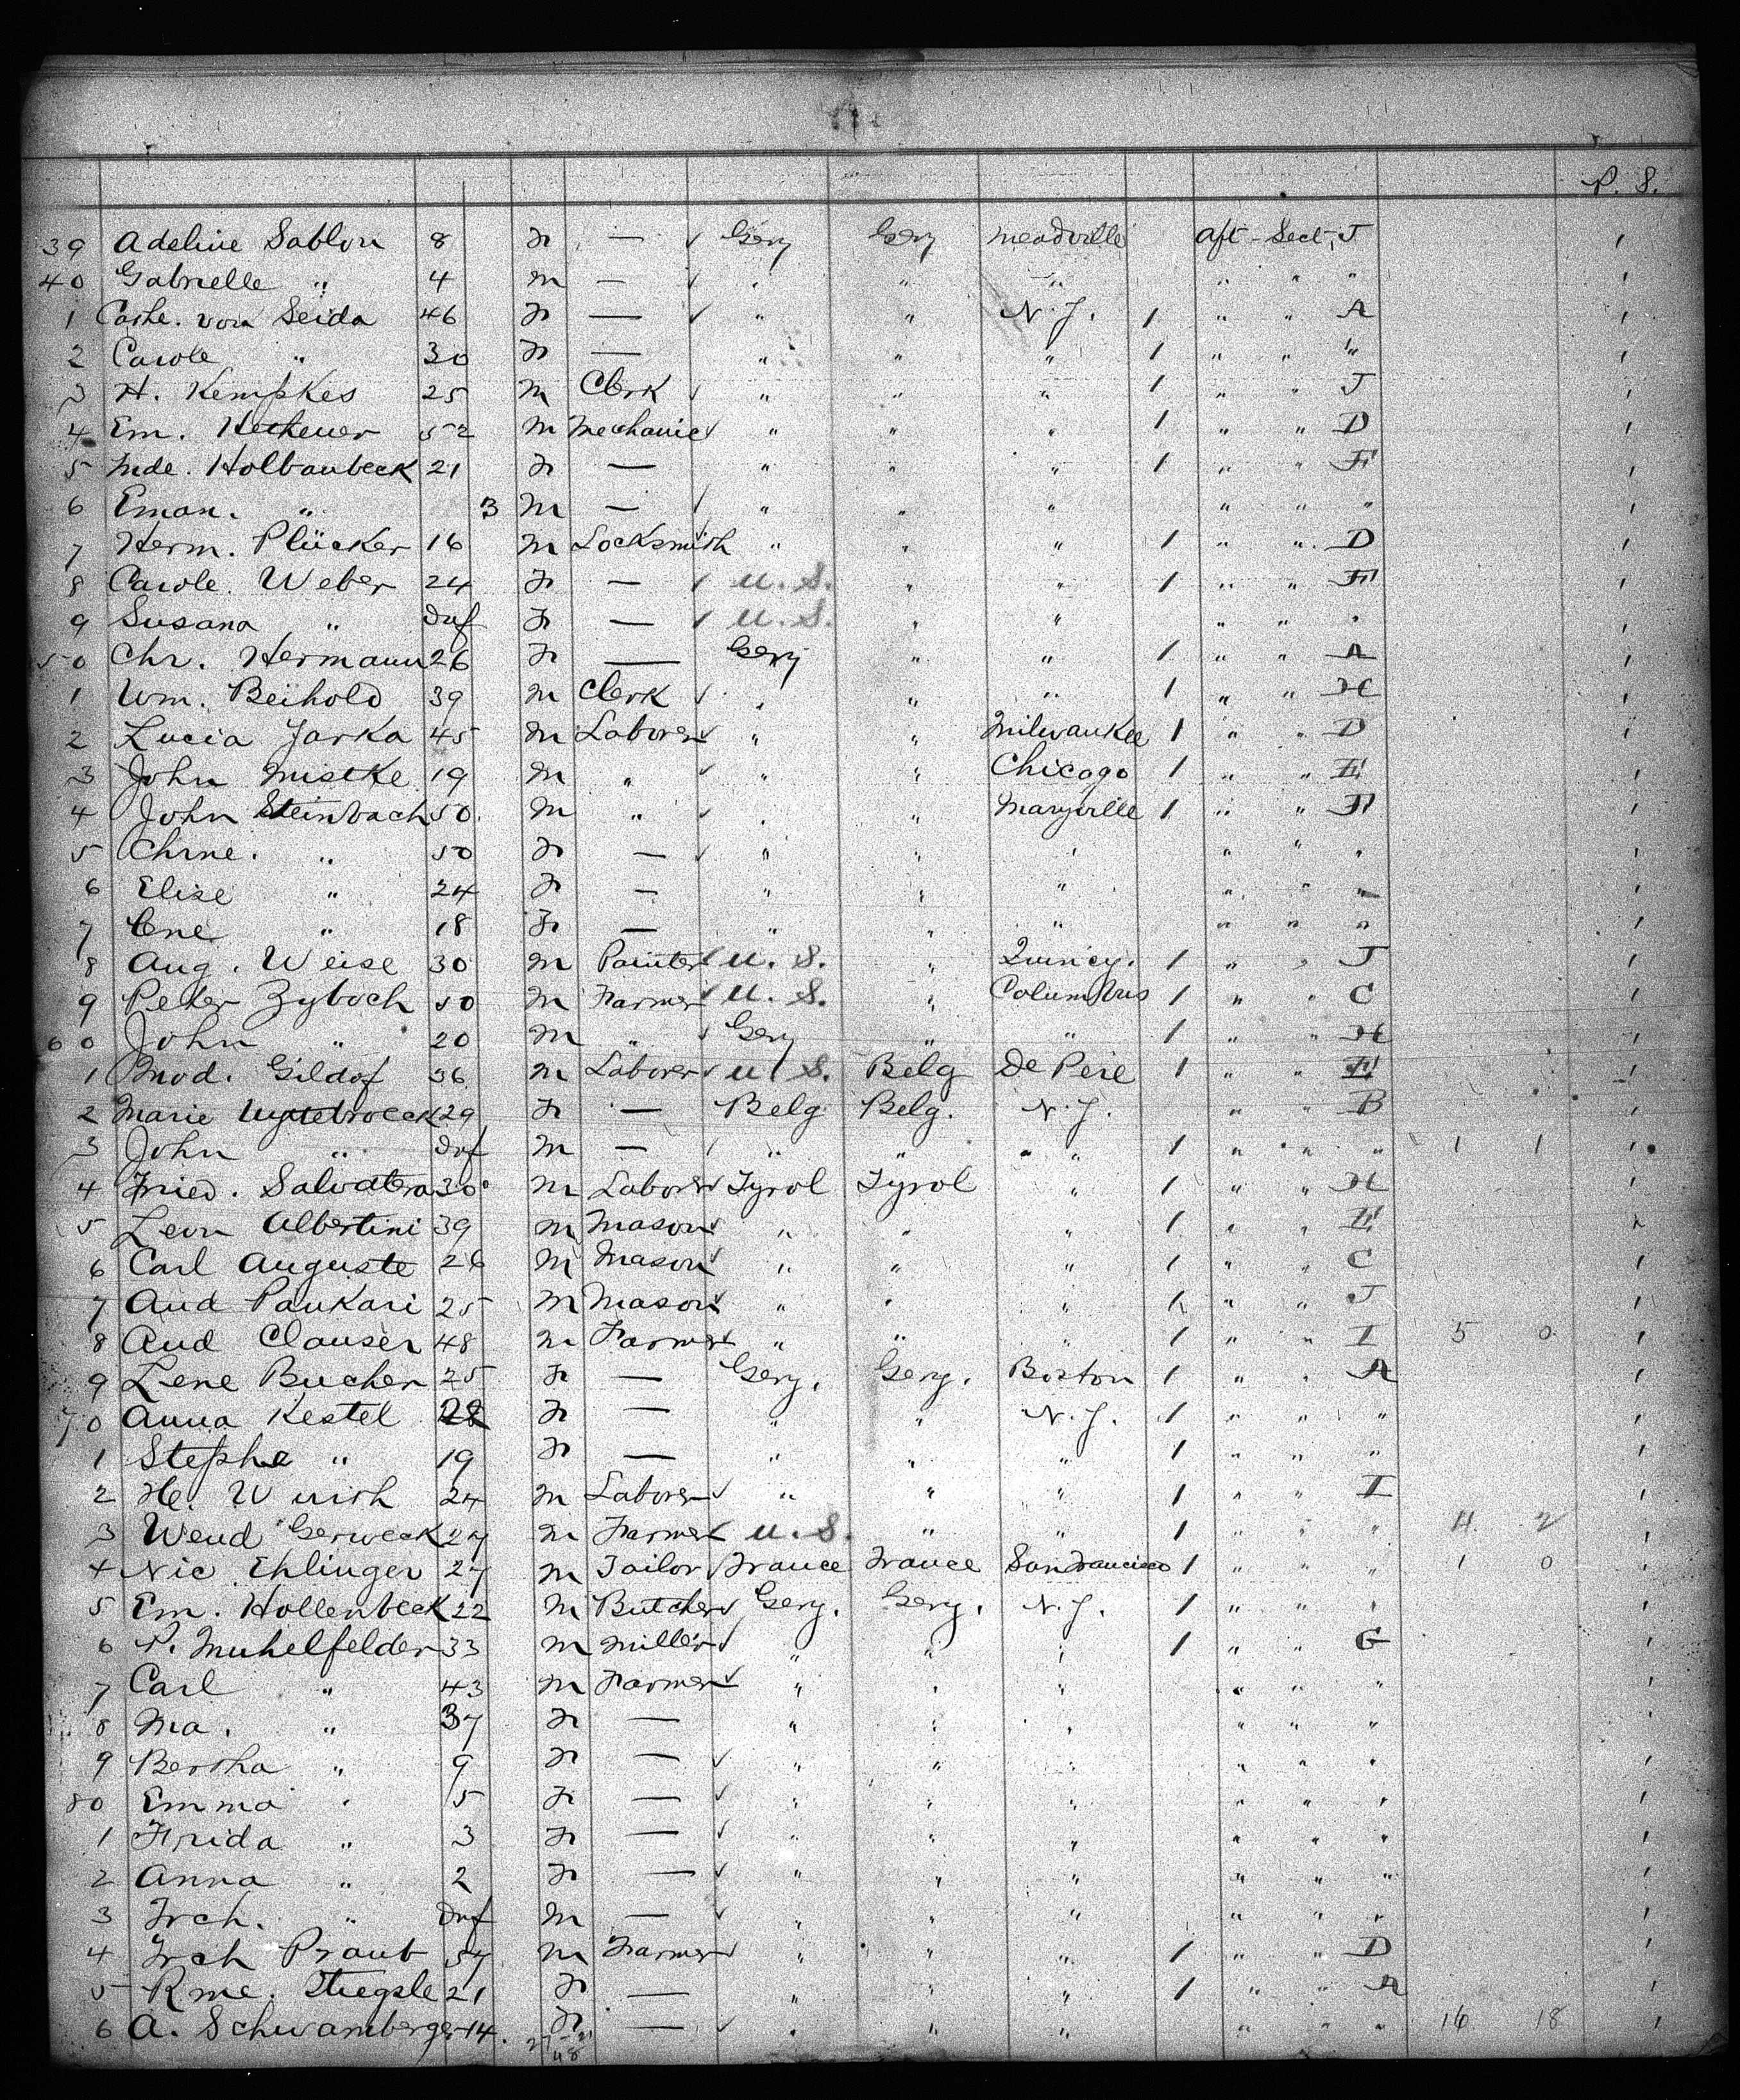 P. S.
39 Adeline Sablon 8 F — ✓ Gery Gery Meadville Aft - Sect. J 1
40 Gabrielle " 4 m — ✓ " " " " " " 1
1 Cathe. von Seida 46 F — ✓ " " N.Y. 1 " " A 1
2 Carole " 30 F — " " " 1 " " " 1
3 H. Kempkes 25 m Clerk ✓ " " " 1 " " J 1
4 Em. 52 m Mechanic ✓ " " " 1 " " D 1
5 Mde. Holbaubeck 21 F — " " " 1 " " F 1
6 Eman. " 3 m — ✓ " " " " " " 1
7 Herm. Plücker 16 m Locksmith " " " 1 " " D 1
8 Carole. Weber 24 F — ✓ U.S. " " 1 " " F 1
9 Susana " Inf F — ✓ U.S. " " " " " 1
50 Chr. Hermann 26 F — Gery " " 1 " " A 1
1 Wm. Beihold 39 m Clerk ✓ " " " 1 " " H 1
2 Lucia Jarka 45 m Laborer ✓ " " Milwaukee 1 " " D 1
3 John Mistke 19 m " ✓ " " Chicago 1 " " E 1
4 John Steinbach 50 m " ✓ " " Maryville 1 " " F 1
5 Chrne. " 50 F — ✓ " " " " " " 1
6 Elise " 24 F — " " " " " " 1
7 " 18 F — " " " " " " 1
8 Aug. Weise 30 m Painter ✓ U.S. " Quincy. 1 " " J 1
9 Peter Zyboch 50 m Farmer ✓ U.S. " Columbus 1 " " C 1
60 John " 20 m " ✓ Gery " " 1 " " H 1
1 Mod. Gildof 36 m Laborer ✓ U.S. Belg De Pere 1 " " E 1
2 Marie Uyttebroeck 29 F — Belg Belg. N.Y. " " B 1
3 John " Inf m — ✓ " " " 1 " " " 1 1 1
4 Fried. Salvatera 30 m Laborer ✓ Tyrol Tyrol " 1 " " H 1
5 Leon Albertini 39 m Mason ✓ " " " 1 " " E 1
6 Carl Auguste 26 m Mason ✓ " " " 1 " " C 1
7 And Paukari 25 m Mason ✓ " " " 1 " " J 1
8 And Clauser 48 m Farmer ✓ " " " 1 " " I 5 0 1
9 Lene Bucher 25 F — Gery. Gery. Boston 1 " " A 1
70 Anna Kestel 22 F — " " N.Y. 1 " " " 1
1 Stephe " 19 F — " " " 1 " " " 1
2 He. Wirth 24 m Laborer ✓ " " " 1 " " I 1
3 Wend Gerweck 27 m Farmer ✓ U.S. " " 1 " " " 4 2 1
4 Nic Ehlinger 27 m Tailor ✓ France France San Francisco 1 " " " 1 0 1
5 Em. Hollenbeck 22 m Butcher ✓ Gery. Gery. N.Y. 1 " " " 1
6 P. Muhelfelder 33 m Miller ✓ " " " 1 " " G 1
7 Carl " 43 m Farmer ✓ " " " " " " 1
8 Ma. " 37 F — " " " " " " 1
9 Bertha " 9 F — ✓ " " " " " " 1
80 Emma " 5 F — ✓ " " " " " " 1
1 Frida " 3 F — ✓ " " " " " " 1
2 Anna " 2 F — ✓ " " " " " " 1
3 Frch. " Inf m — ✓ " " " " " " 1
4 Frch Praub 57 m Farmer ✓ " " " 1 " " D 1
5 Rme. Stiegele 21 F — " " " 1 " " A 1
6 A. Schwamberger 14. F — ✓ " " " " " " 16 18 1
27 21
48